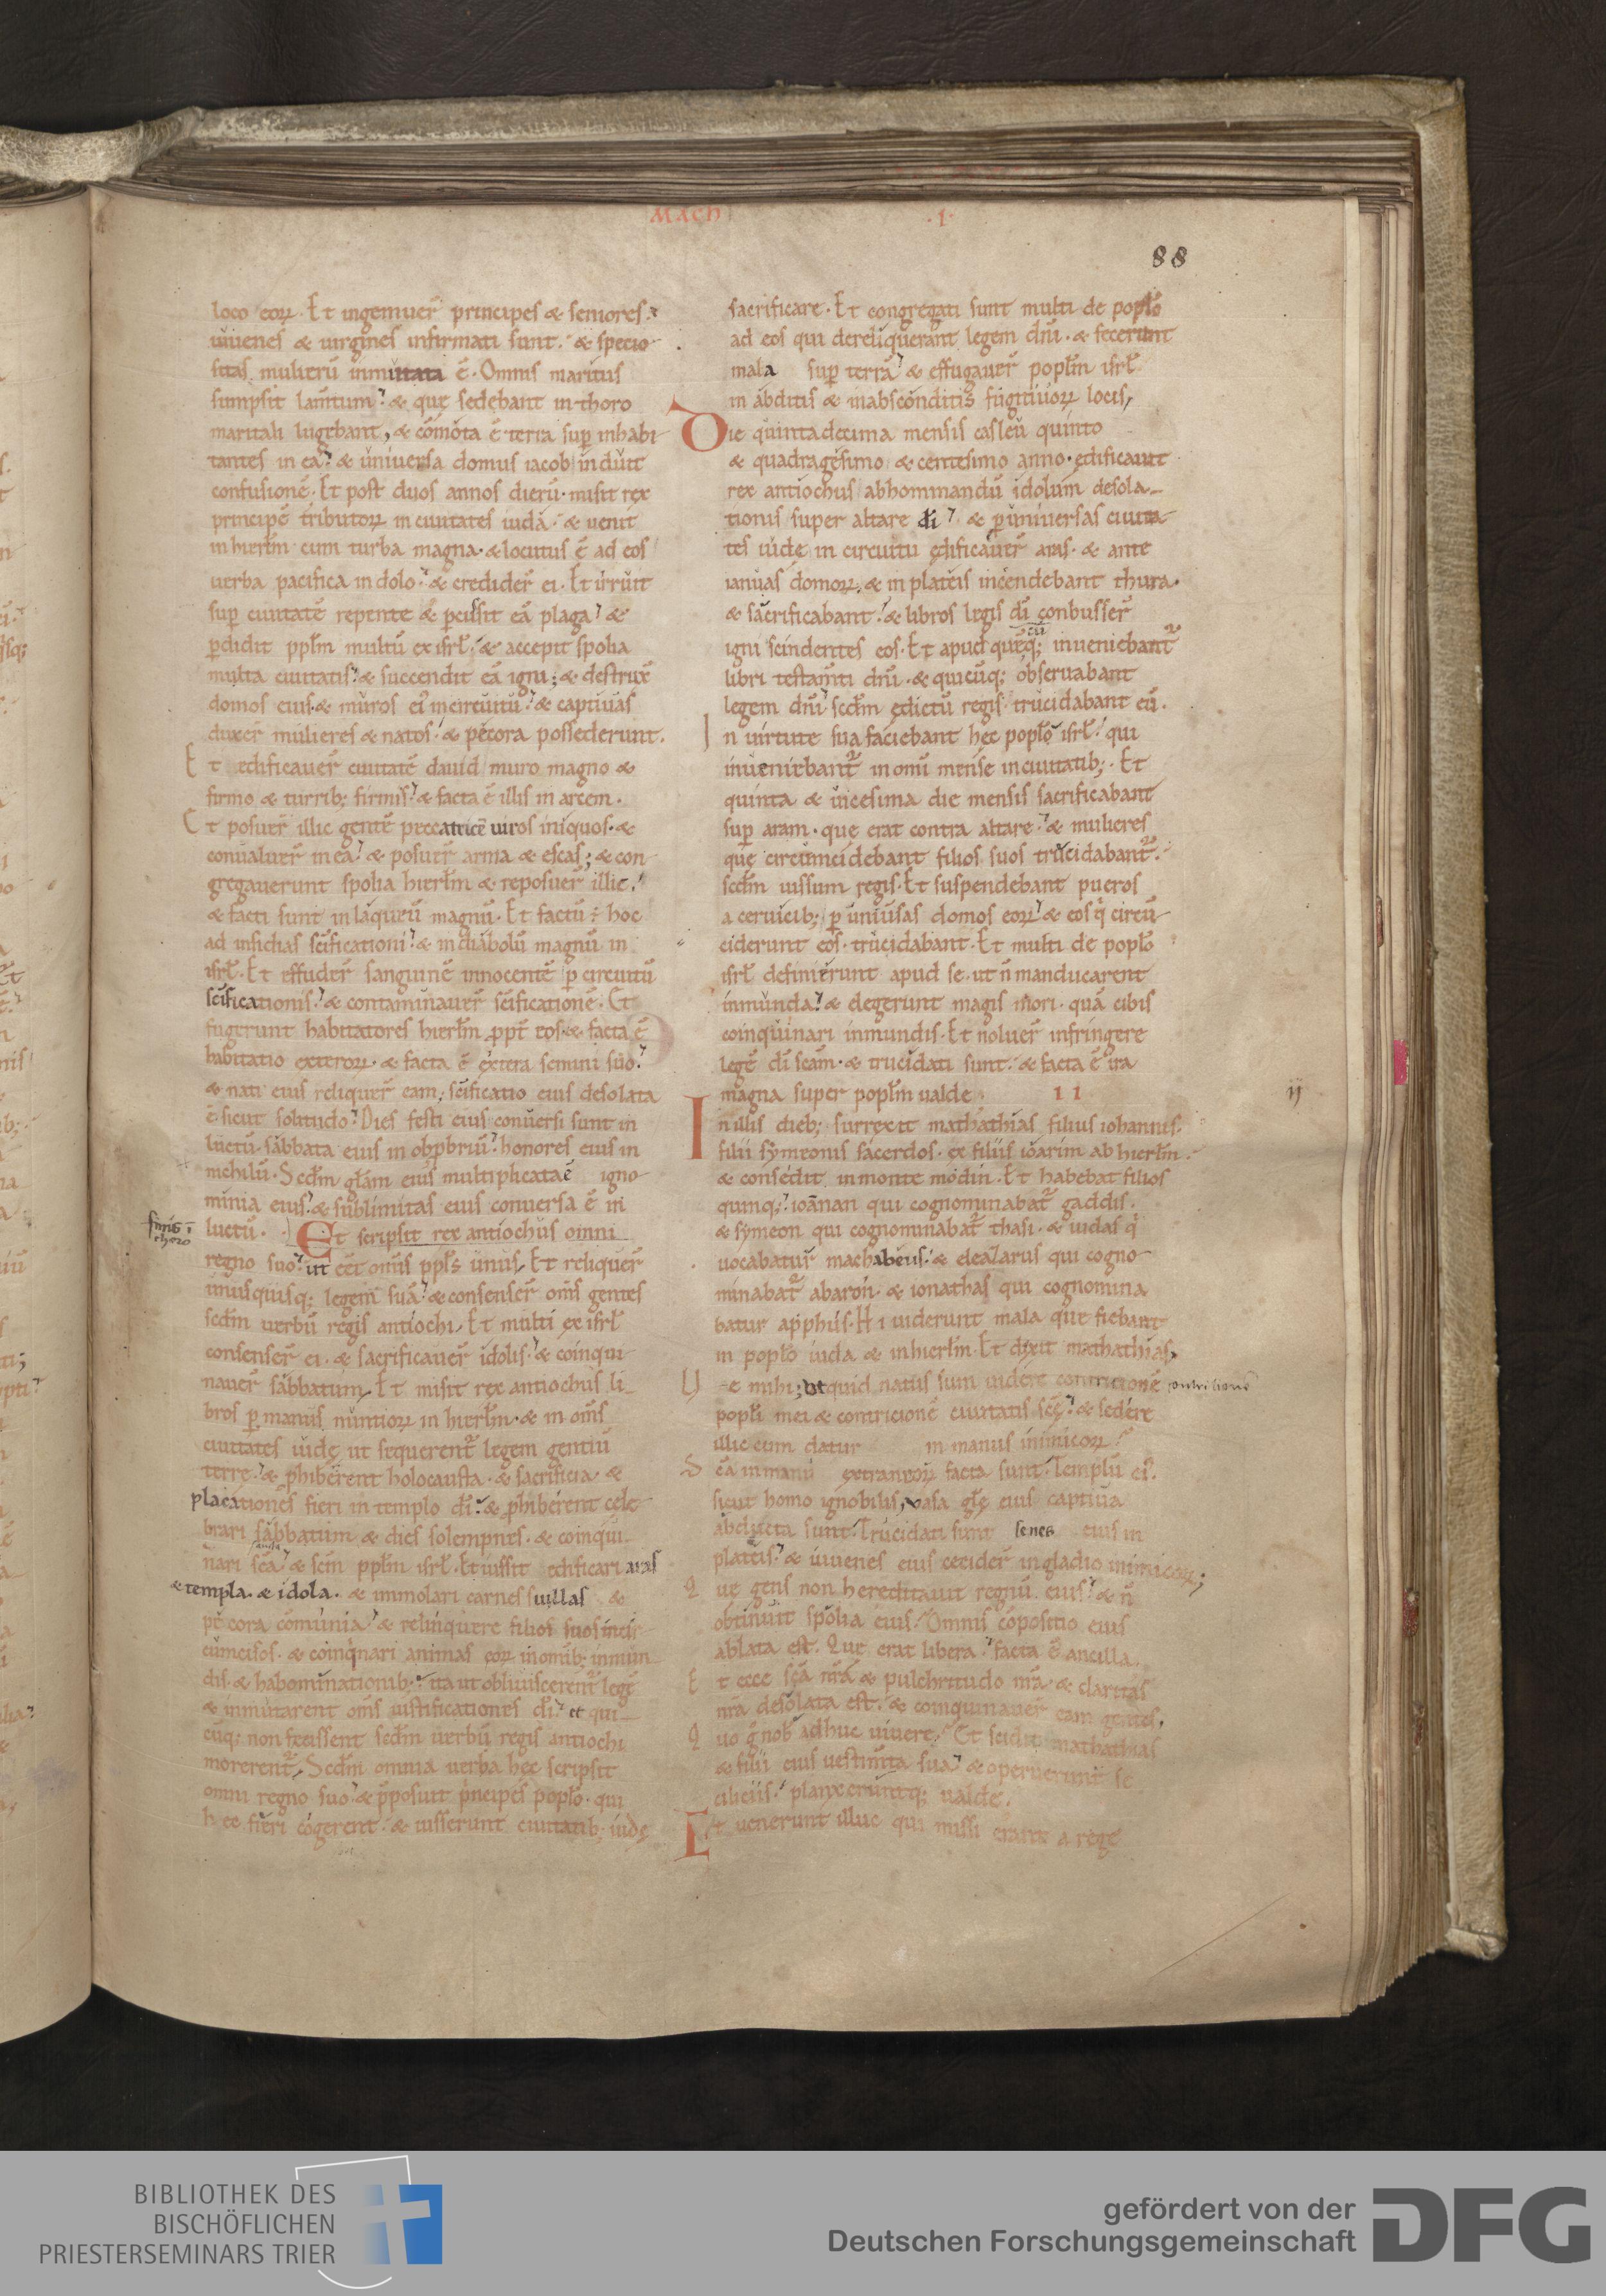 MACH
.I.
88
loco eoꝝ. Et ingemuer̄ principes & seniores.
iuuenes & uirgines infirmati sunt. & specio
sitas mulierū inmutata ē. Omnis maritus
sumpsit lam̄tum. & quę sedebant in thoro
maritali lugebant, & cōmota ē terra sup̄ inhabi
tantes in ea. & uniuersa domus iacob induit
confusionē. Et post duos annos dierū. misit rex
principē tributoꝝ in ciuitates iuda. & uenit
in hierlm̄ cum turba magna. & locutus ē ad eos
uerba pacifica in dolo. & credider̄ ei. Et irruit
sup̄ ciuitatē repente & ꝑcussit eā plaga. &
ꝑdidit ppłm multū ex isrł. & accepit spolia
multa ciuitatis. & succendit eā igni; & destrux̄
domos eius. & muros ei᷒ in circuitu. & captiuas
duxer̄ mulieres & natos. & pecora possederunt.
Et edificauer̄ ciuitatē dauid muro magno &
firmo & turrib; firmis. & facta ē illis in arcem.
Et posuer̄ illic gentē peccatricē uiros iniquos. &
conualuer̄ in ea. & posuer̄ arma & escas; & con
gregauerunt spolia hierłm & reposuer̄ illic.
& facti sunt in laqueū magnū. Et factū ÷ hoc
ad insidias scificationi. & in diabolū magnū in
isrł. Et effuder̄ sanguinē innocentē ꝑ circuitū
scificationis. & contaminauer̄ scificationē. Et
fugerunt habitatores hierłm ꝓpt̄ eos. & facta ē
habitatio exteroꝝ. & facta ē extera semini suo.
& nati eius reliquer̄ eam; scificatio eius desolata
ē sicut solitudo. Dies festi eius conuersi sunt in
luctū. sabbata eius in obꝓbriū. honores eius in
nichilū. Scdm̄ głam eius multiplicata ē igno
minia eius. & sublimitas eius conuersa ē in
luctū. Et scripsit rex antiochus omni
regno suo. ut eēt om̄is ppłs unus. Et reliquer̄
unusquisq; legem suā. & consenser̄ om̄s gentes
scdm̄ uerbū regis antiochi. Et multi ex isrł
consenser̄ ei. & sacrificauer̄ idolis. & coinqui
nauer̄ sabbatum. Et misit rex antiochus li
bros ꝑ manus nuntioꝝ in hierłm. & in om̄s
ciuitates iudę ut sequerent̄ legem gentiū
terre. & ꝓhiberent holocausta. & sacrificia. &
placationes fieri in templo di. & ꝓhiberent cele
brari sabbatum & dies solempnes. & coinqui
nari scā. & scm̄ ppłm isrł. Et iussit edificari aras
& templa. & idola. & immolari carnes suillas &
pecora cōmunia. & relinquere filios suos incir
cumcisos. & coinqnari animas eoꝝ in omīb; inmun
dis. & habominationib; ita ut obliuiscerent̄ legē
& inmutarent om̄s iustificationes di. et qui
cuq; non fecissent scdm̄ uerbū regis antiochi
morerent̄. Scdm̄ omnia uerba hec scripsit
omni regno suo. & p̄posuit p̄ncipes popło. qui
hec fieri cogerent. & iusserunt ciuitatib; iudę
sacrificare. Et congregati sunt multi de popło
ad eos qui dereliquerant legem dn̄i. & fecerunt
mala sup̄ terrā. & effugauer̄ popłm isrł
in abditis & in absconditis fugitiuoꝝ locis,
Die quintadecima mensis casleu quinto
& quadragesimo & centesimo anno. edificauit
rex antiochus abhominandū idolum desola
tionis super altare di. & ꝑ uniuersas ciuita
tes iudę in circuitu edificauer̄ aras. & ante
ianuas domoꝝ. & in plateis incendebant thura.
& sacrificabant. & libros legis di conbusser̄
igni scindentes eos. Et apud quēq; inueniebant̄
libri testam̄ti dn̄i. & quicūq; obseruabant
legem dn̄i scdm̄ edictū regis trucidabant eū.
In uirtute sua faciebant hec popło isrł. qui
inueniebant̄ in omi mense in ciuitatib;. Et
quinta & uicesima die mensis sacrificabant
sup̄ aram. que erat contra altare. & mulieres
quę circumcidebant filios suos trucidabant̄.
scdm̄ iussum regis. Et suspendebant pueros
a ceruicib; ꝑ uniūsas domos eoꝝ. & eos q̇ circū
ciderunt eos. trucidabant. Et multi de popło
isrł definierunt apud se. ut n̄ manducarent
inmunda. & elegerunt magis mori. quā cibis
coinquinari inmundis. Et noluer̄ infringere
legē di scam. & trucidati sunt. & facta ē ira
magna super popłm ualde
II
ij
In illis dieb; surrexit mathathias filius iohannis.
filii symeonis sacerdos. ex filiis ioarim ab hierłm.
& consedit in monte modin. Et habebat filios
quinq;. ioānan qui cognominabat̄ gaddis.
& symeon qui cognominabat̄ thasi. & iudas q̇
uocabatur machabeus. & eleazarus qui cogno
minabat̄ abaron. & ionathas qui cognomina
batur apphus. Hi uiderunt mala que fiebant
in popło iuda & in hierłm. Et dixit mathathias,
Ue mihi; ut quid natus sum uidere contricionē
contritionē
popłi mei & contricionē ciuitatis scę. & sedere
illic cum datur in manus inimicoꝝ.
Scā in manu extraneoꝝ facta sunt. Templū ei᷒.
sicut homo ignobilis, uasa głę eius captiua
abducta sunt. Trucidati sunt senes eius in
plateis. & iuuenes eius cecider̄ in gladio inimicoꝝ;
Que gens non hereditauit regnū eius. & n̄
obtinuit spolia eius. Omnis cōpositio eius
ablata est. Que erat libera. facta ē ancilla.
Et ecce scā nr̄a & pulchritudo nr̄a. & claritas
nr̄a desolata est. & coinquinauer̄ eam gentes.
Quo g̊ nob̄ adhuc uiuere. Et scidit mathathias
& filii eius uestim̄ta sua. & operuerunt se
ciliciis. planxeruntq; ualde.
Et uenerunt illuc qui missi erant a rege
BIBLIOTHEK DES
BISCHÖFLICHEN
PRIESTERSEMINARS TRIER
gefördert von der
Deutschen Forschungsgemeinschaft
DFG